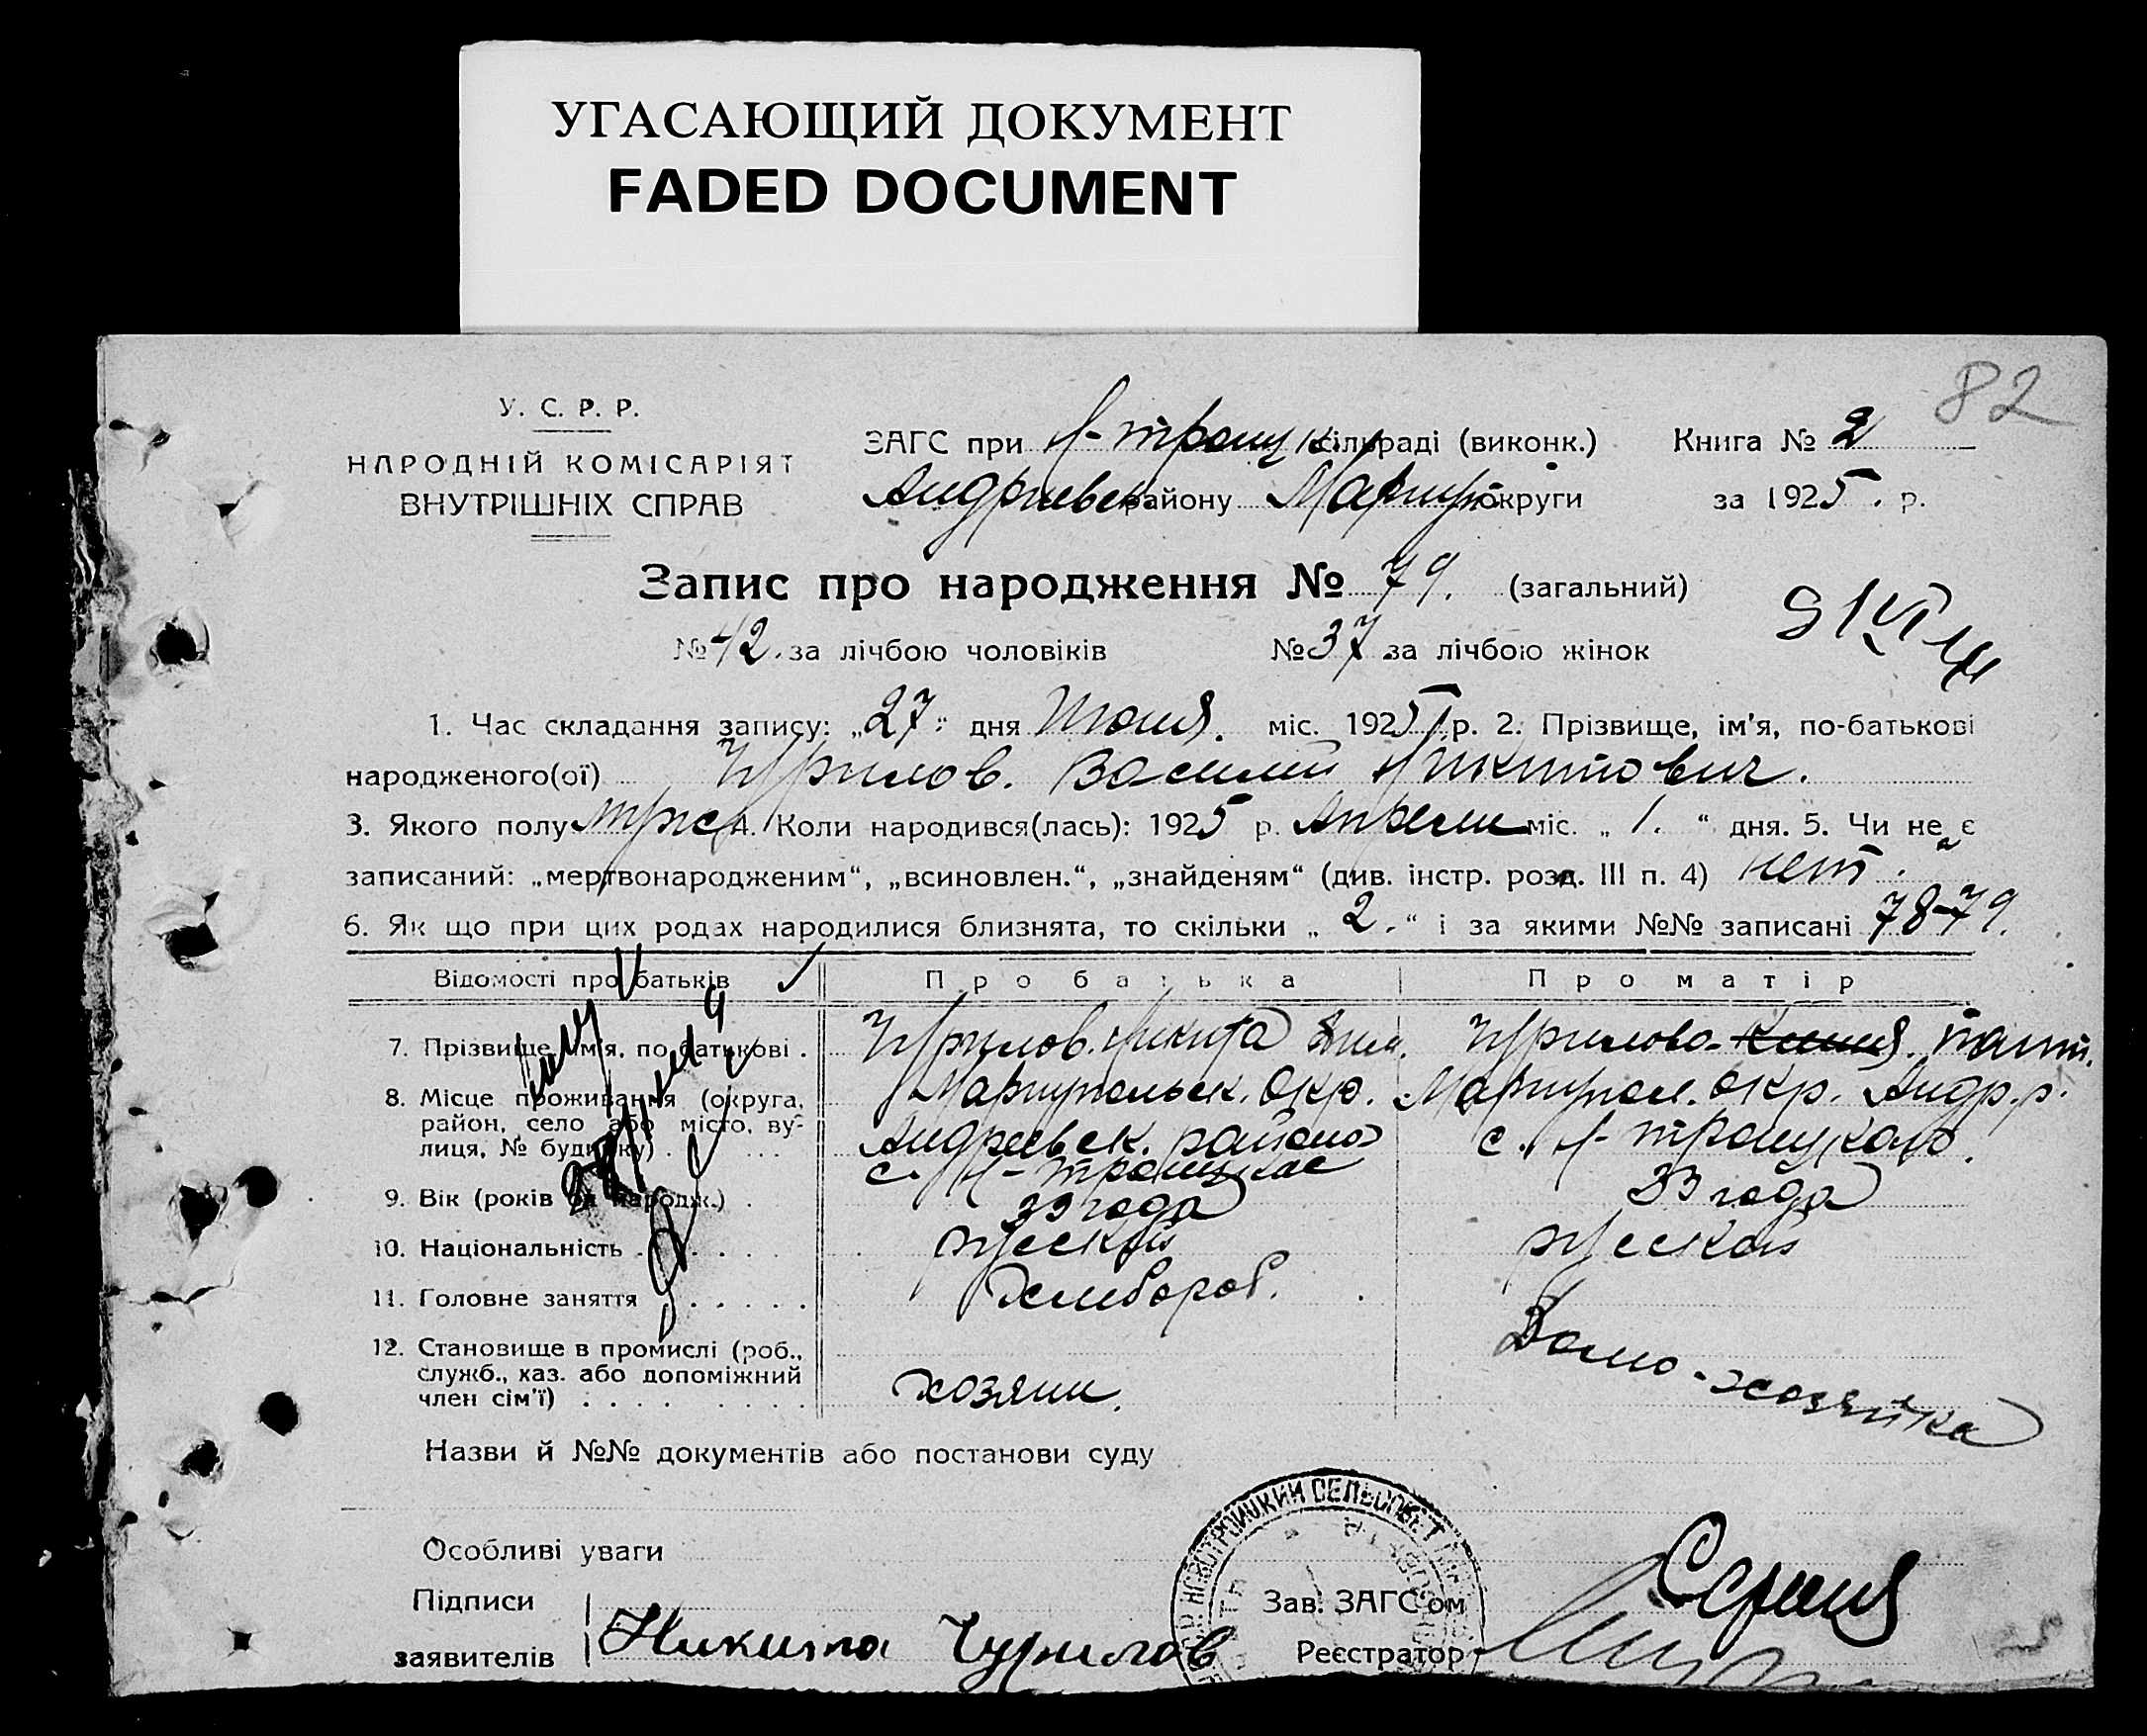 УГАСАЮЩИЙ ДОКУМЕНТ
FADED DOCUMENT
82
У. С. Р. Р.
НАРОДНІЙ КОМІСАРІЯТ
ВНУТРІШНІХ СПРАВ
ЗАГС при Н-троицк сільраді (виконк.) Книга № 2
Андреевск району Мариуп округи за 1925 . р.
Запис про народження № 79. (загальний)
№ 42. за лічбою чоловіків № 37 за лічбою жінок
1. Час складання запису: „27“ дня Июня. міс. 1925 р. 2. Прізвище, ім'я, по-батькові
народженого(ої) Чурилов. Василий Никитович.
3. Якого полу муж 4. Коли народився(лась): 1925 р. Апрели міс. „ 1. “ дня. 5. Чи не є
записаний: „мертвонародженим“, „всиновлен.“, „знайденям“ (див. інстр. розд. III п. 4) нет.
6. Як що при цих родах народилися близнята, то скільки „ 2. “ і за якими №№ записані 78-79.
Відомості про батьків Про батька Про матір
7. Прізвище, ім'я, по батькові . Чурилов. Никита Чурилова
8. Місце проживання (округа, район, село або місто, вулиця, № будинку) . Мариупольск. Окр. Мариупол. окр. Андр. р.
Андреевск. района с. Н-троицкаго.
с. Н-Троицкае
9. Вік (років од народж.) . 33 года 33 года
10. Національність . русскай русскай
11. Головне заняття Хлебороб.
12. Становище в промислі (роб., служб., хаз. або допоміжний член сім'ї) хозяин. Домо-хозяйка
Назви й №№ документів або постанови суду
НОВОТРОИЦКИЙ СЕЛЬСОВЕТ
Особливі уваги
Підписи заявителів Никита Чурилов
Зав. ЗАГС'ом
Реєстратор